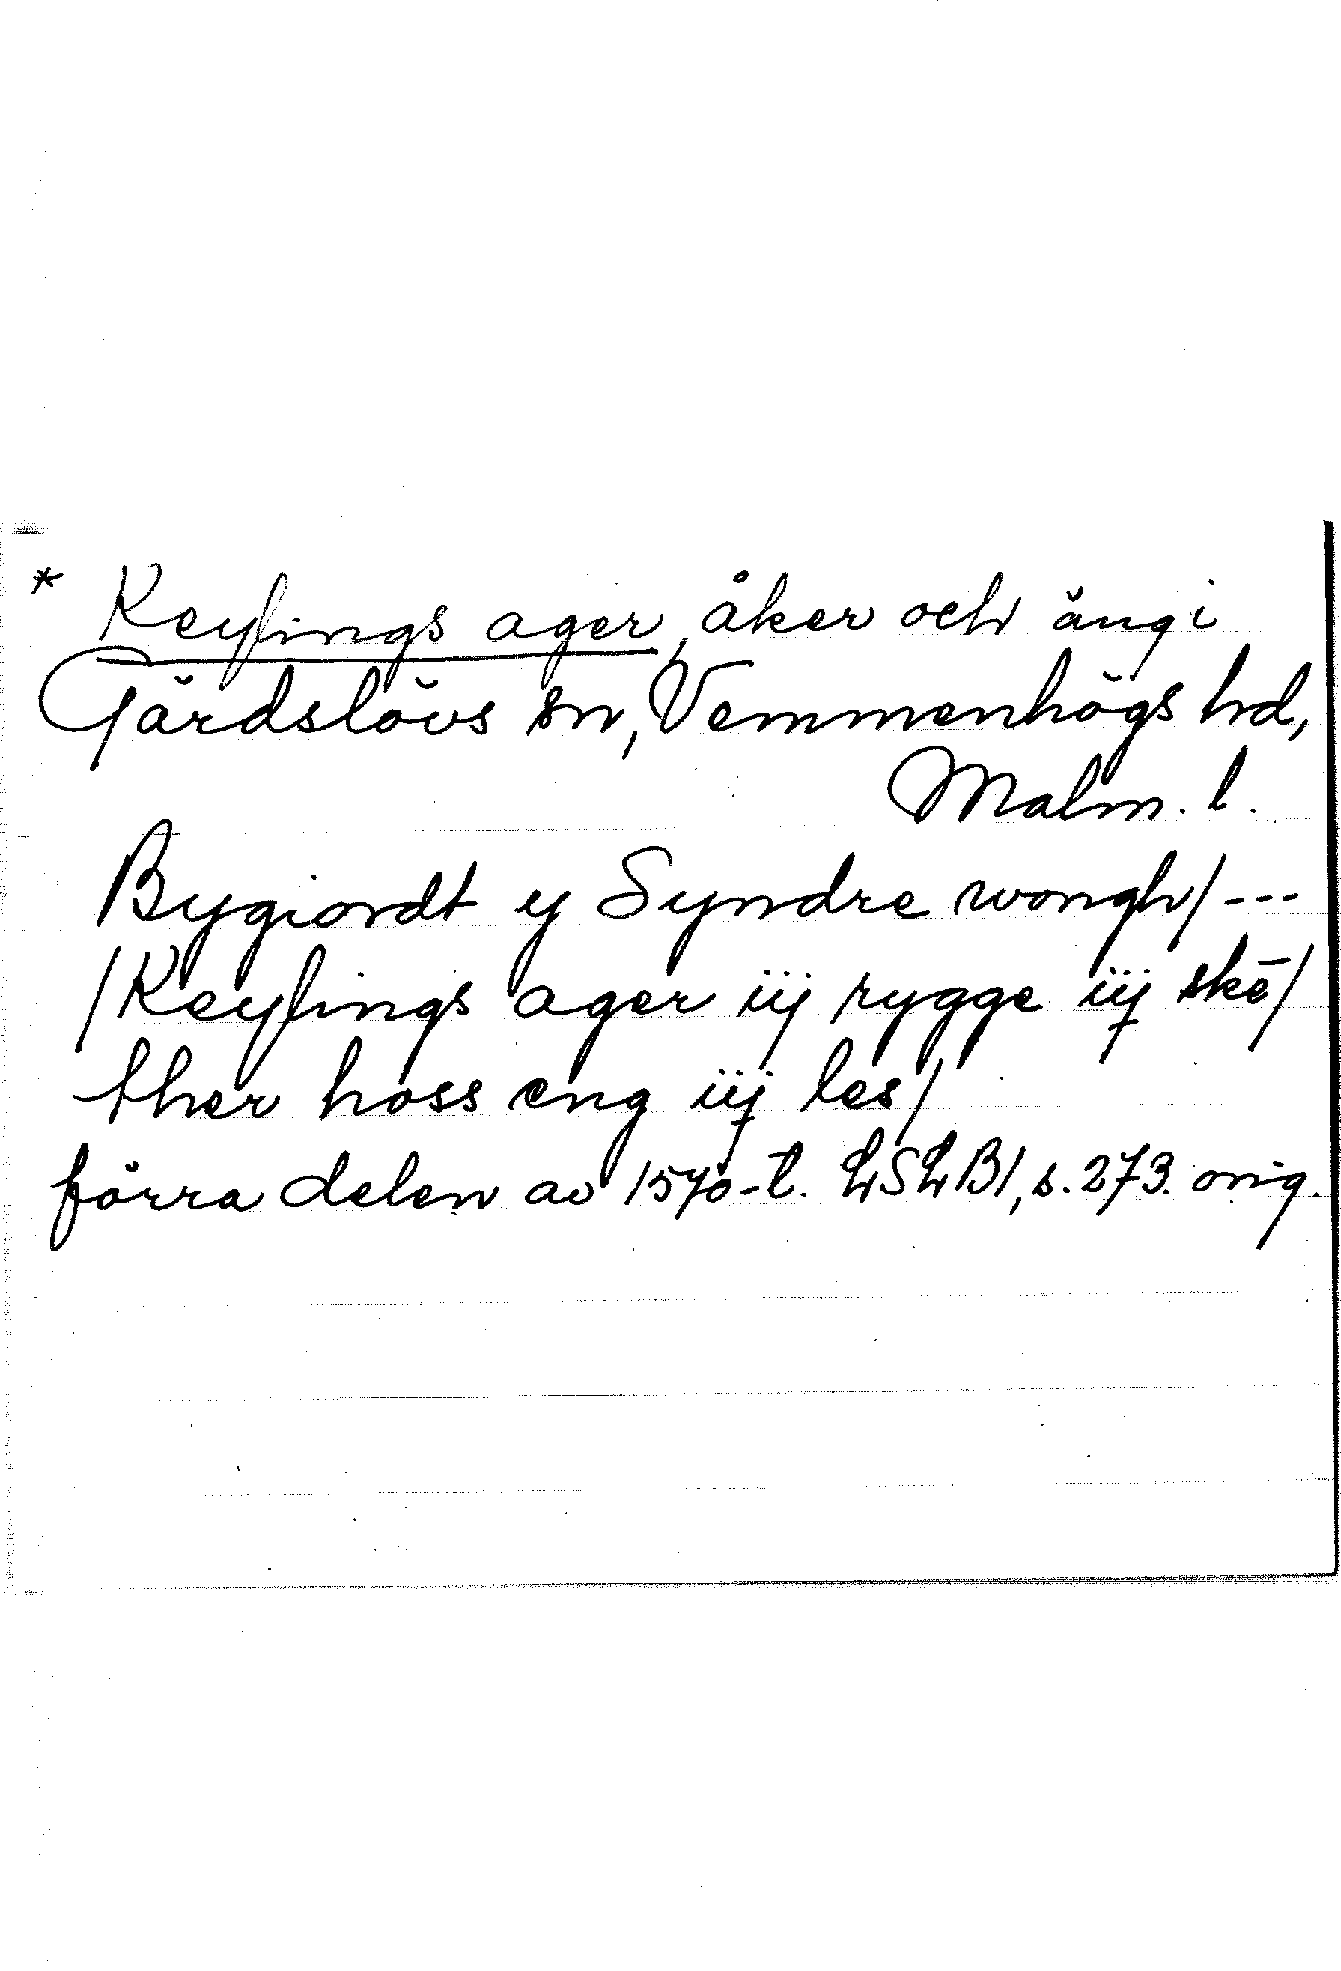 * Keyſings ager, åker och äng i
Gärdslövs sn, Vemmenhögs hd,
Malm. l.
Bygiordt y Syndre wongh/---
/Keyſings ager iij rygge iij skē/
ther hoss eng iij les/
förra delen av 1570-t. LSLB1, s. 273. orig.